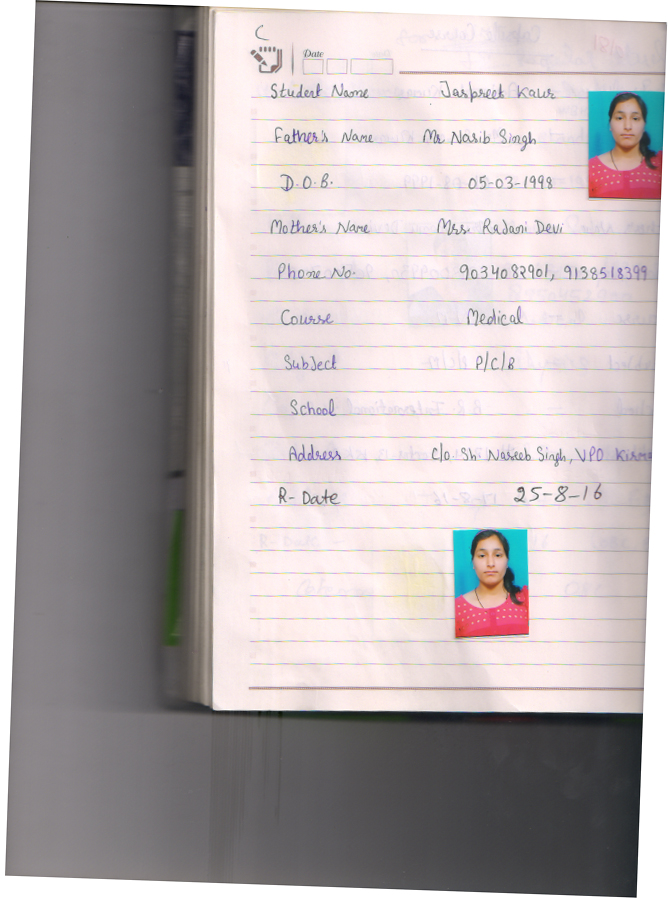 C
Date
Student Name Jaspreet Kaur
Father's Name Mr. Nasib Singh
D.O.B. 05-03-1998
Mother's Name Mrs. Rajani Devi
Phone No. 9034082901, 9138518399
Course Medical
Subject P/C/B
School
Address C/o. Sh. Naseeb Singh, VPO
R- Date 25-8-16